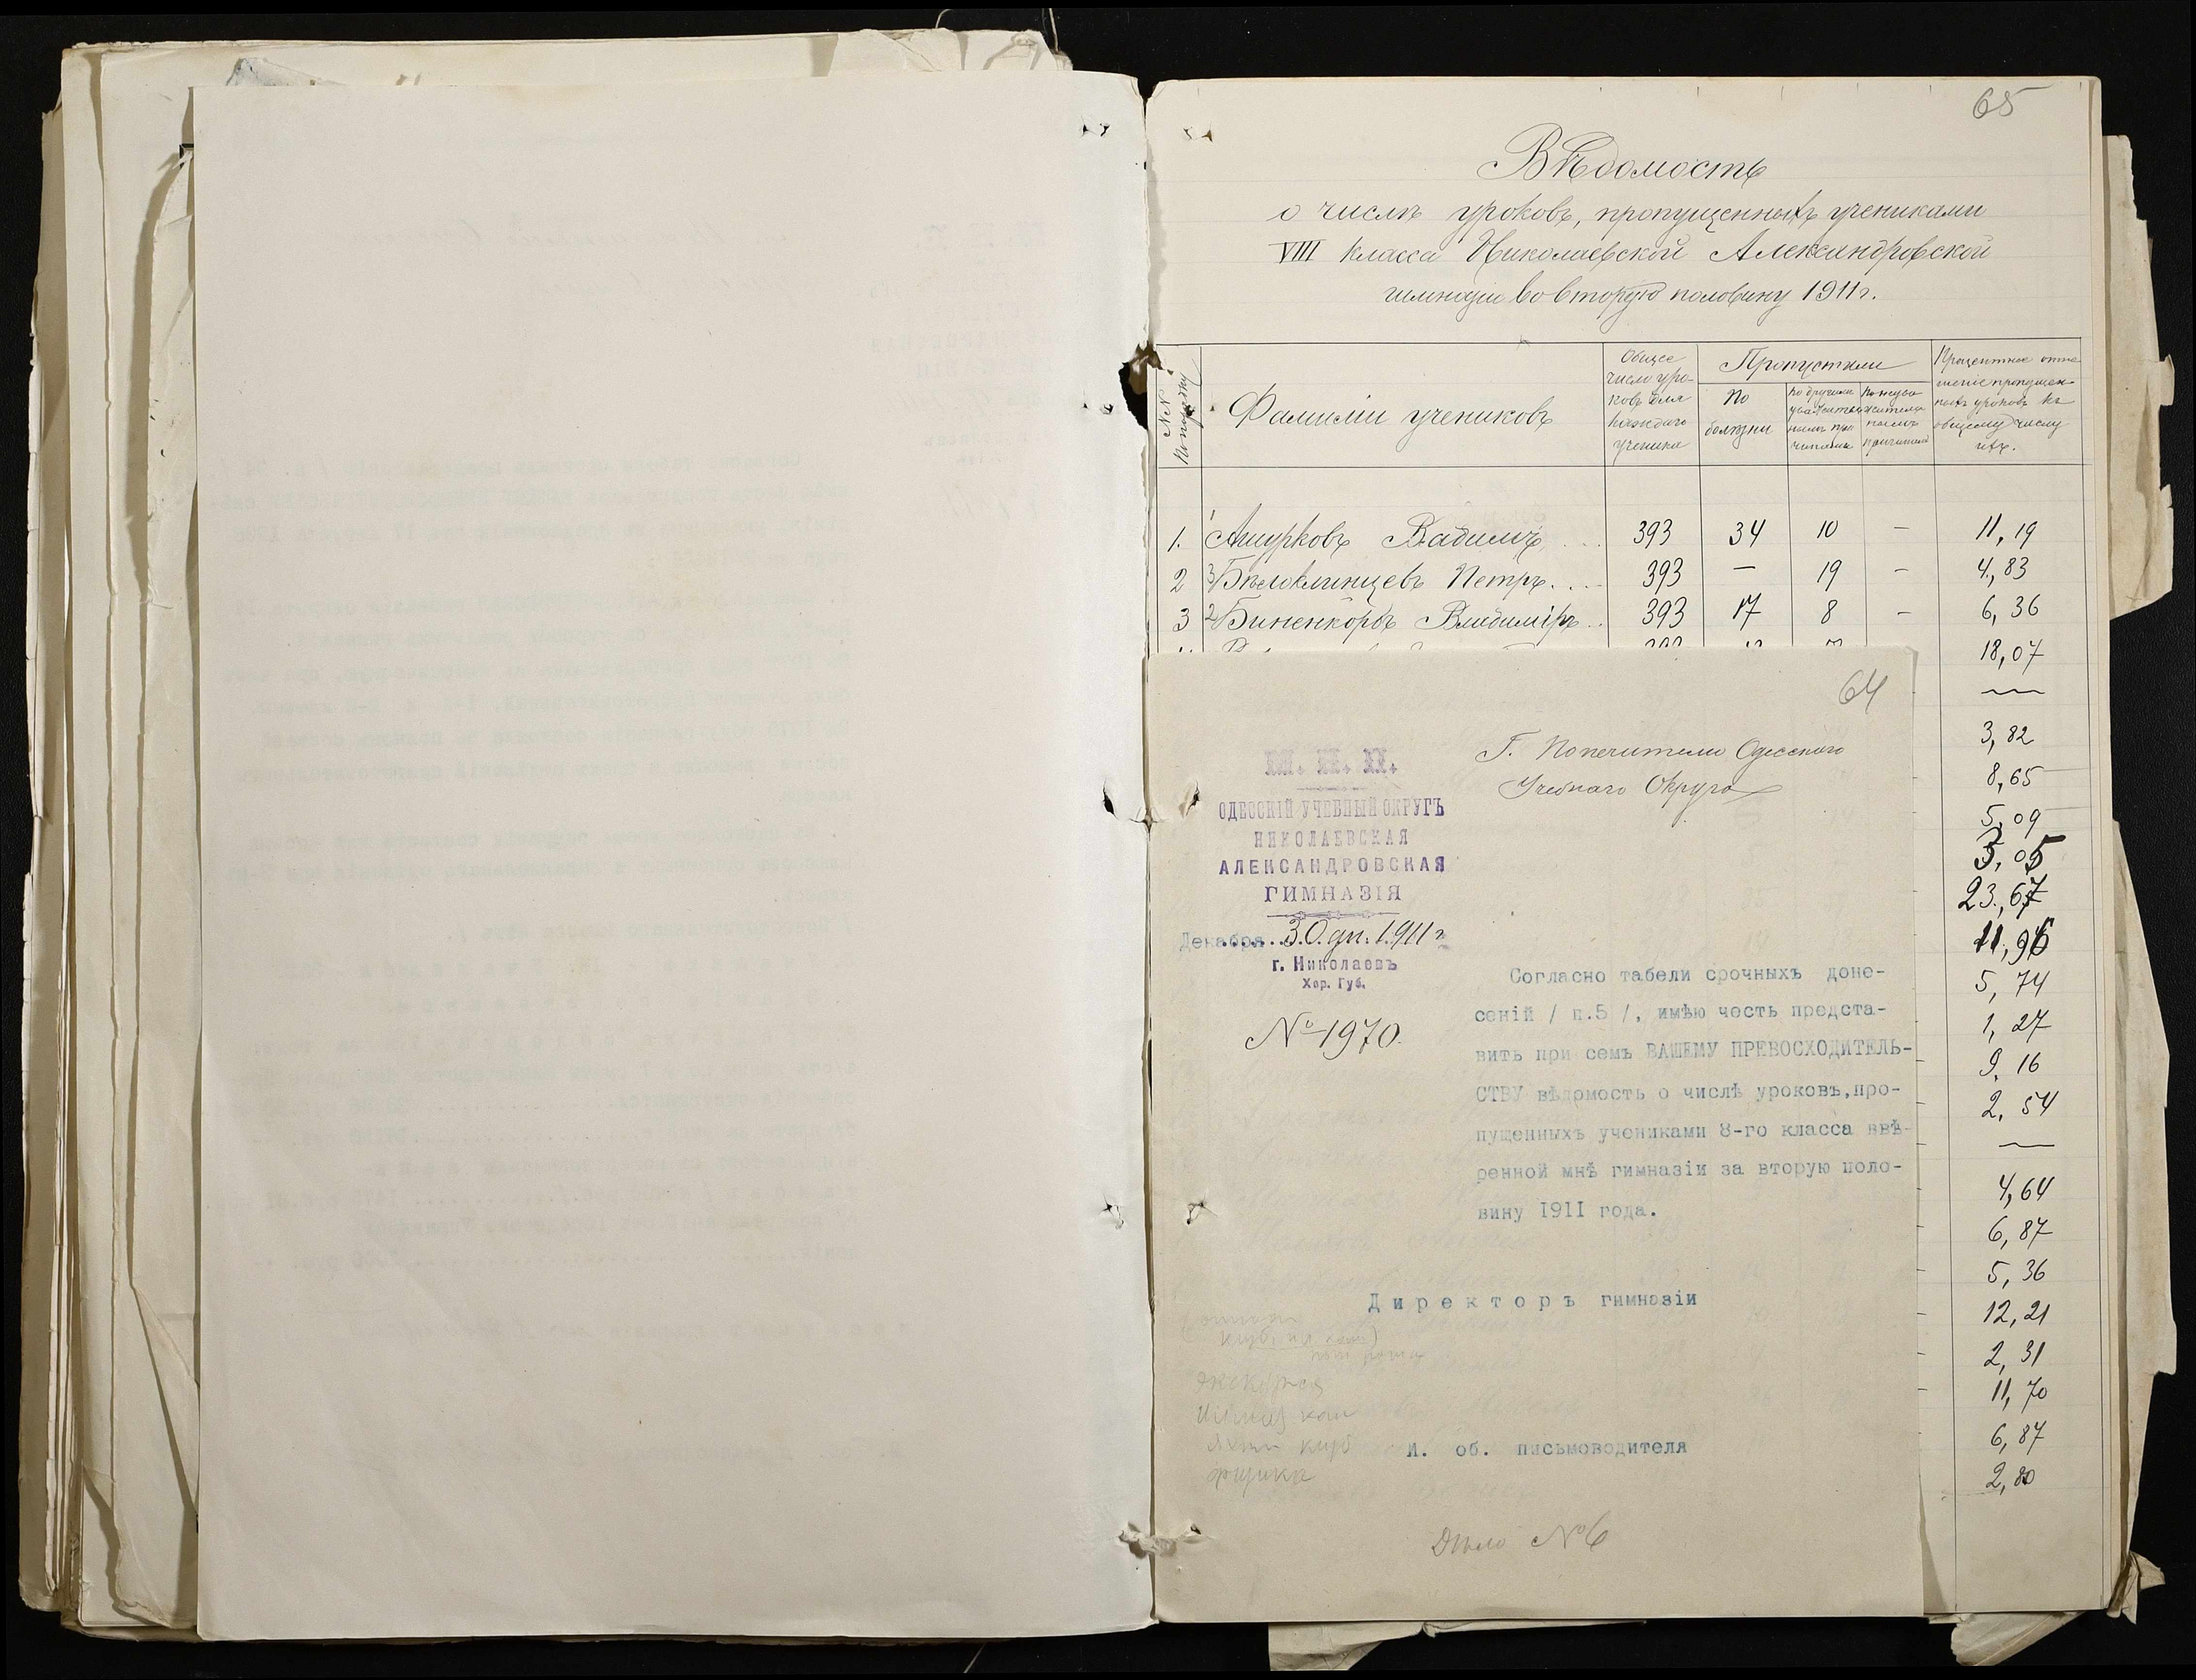 65
Вѣдомость
о числѣ уроковъ, пропущенныхъ учениками
VIII класса Николаевской Александровской
гимназіи во вторую половину 1911 г.
№№ по порядку
Фамиліи учениковъ
Общее число уроковъ для каждаго ученика
Пропустили
По болѣзни
По другимъ уважительнымъ причинамъ
По неуважительнымъ причинамъ
Процентное отношеніе пропущенныхъ уроковъ къ общему числу ихъ.
1. 1 Ашурковъ Вадимъ 393 34 10 — 11,19
2 3 Бѣлоклинцевъ Петръ. 393 — 19 — 4,83
3 2 Биненкорбъ Владиміръ 393 17 8 — 6,36
18,07
—
3,82
8,65
5,09
3,05
23,67
11,96
5,74
1,27
9,16
2,54
—
4,64
6,87
5,36
12,21
2,31
11,70
6,87
2,80
64
Г. Попечителю Одесскаго
Учебнаго Округа
М. Н. П.
ОДЕССКІЙ УЧЕБНЫЙ ОКРУГЪ
НИКОЛАЕВСКАЯ
АЛЕКСАНДРОВСКАЯ
ГИМНАЗІЯ
Декабря 30 дн. 1911 г.
г. Николаевъ
Хер. Губ.
№ 1970.
Согласно табели срочныхъ доне-
сеній / п.5 /, имѣю честь предста-
вить при семъ ВАШЕМУ ПРЕВОСХОДИТЕЛЬ-
СТВУ вѣдомость о числѣ уроковъ,про-
пущенныхъ учениками 8-го класса ввѣ-
ренной мнѣ гимназіи за вторую поло-
вину I9II года.
Директоръ гимназіи
И. об. письмоводителя
Дѣло № 6